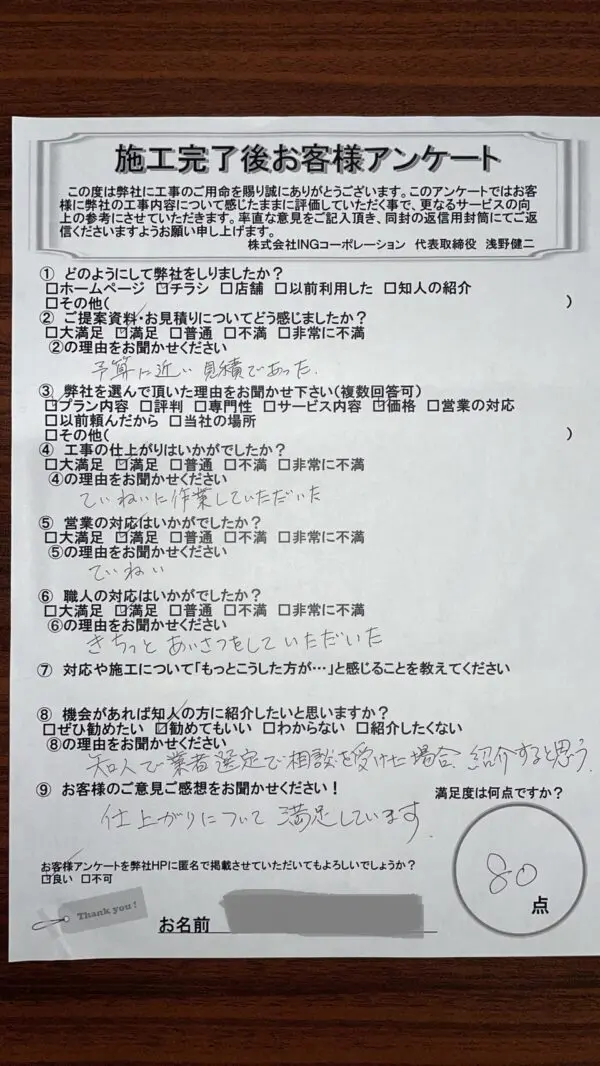 施工完了後お客様アンケート
この度は弊社に工事のご用命を賜り誠にありがとうございます。このアンケートではお客
様に弊社の工事内容について感じたままに評価していただく事で、更なるサービスの向
上の参考にさせていただきます。率直な意見をご記入頂き、同封の返信用封筒にてご返
信くださいますようお願い申し上げます。
株式会社INGコーポレーション 代表取締役 浅野健二
① どのようにして弊社をしりましたか？
□ホームページ ☑チラシ □店舗 □以前利用した □知人の紹介
□その他( )
② ご提案資料・お見積りについてどう感じましたか？
□大満足 ☑満足 □普通 □不満 □非常に不満
②の理由をお聞かせください
予算に近い見積であった.
③ 弊社を選んで頂いた理由をお聞かせ下さい(複数回答可)
☑プラン内容 □評判 □専門性 □サービス内容 ☑価格 □営業の対応
□以前頼んだから □当社の場所
□その他( )
④ 工事の仕上がりはいかがでしたか？
□大満足 ☑満足 □普通 □不満 □非常に不満
④の理由をお聞かせください
ていねいに作業していただいた
⑤ 営業の対応はいかがでしたか？
□大満足 ☑満足 □普通 □不満 □非常に不満
⑤の理由をお聞かせください
ていねい
⑥ 職人の対応はいかがでしたか？
□大満足 ☑満足 □普通 □不満 □非常に不満
⑥の理由をお聞かせください
きちっとあいさつをしていただいた
⑦ 対応や施工について「もっとこうした方が…」と感じることを教えてください
⑧ 機会があれば知人の方に紹介したいと思いますか？
□ぜひ勧めたい ☑勧めてもいい □わからない □紹介したくない
⑧の理由をお聞かせください
知人で業者選定で相談を受けた場合、紹介すると思う.
⑨ お客様のご意見ご感想をお聞かせください！
仕上がりについて満足しています.
満足度は何点ですか？
80
点
お客様アンケートを弊社HPに匿名で掲載させていただいてもよろしいでしょうか？
☑良い □不可
Thank you!
お名前